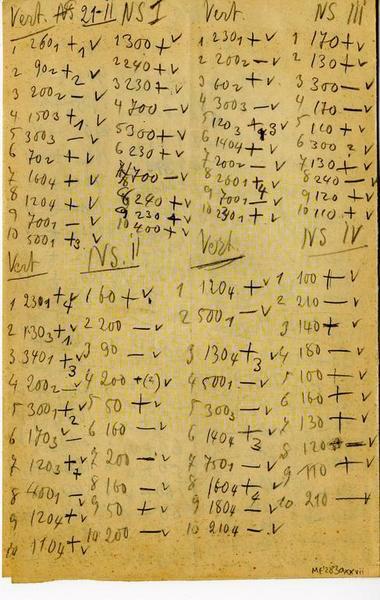 Vert. 21-II NS I
1 2601 + 1 v 1 300 + v
2 902 + 2 v 2 240 + v
3 2002 — v 3 230 + v
4 1503 + 1 v 4 700 — v
5 3003 — v 5 360 + v
6 702 + v 6 230 + v
7 1604 + v 7 700 — v
8 1204 + v 8 240 + v
9 7001 — v 9 230 + v
10 5001 + 3 v 10 400 + v
Vert. NS III
1 2301 + v 1 170 + v
2 2002 — v 2 130 + v
3 602 + v 3 300 — v
4 3003 — v 4 170 — v
5 1203 + 3 v 5 110 + v
6 1404 + v 6 300 2 v
7 2002 — v 7 130 + v
8 2601 + v 8 240 — v
9 7001 — v 9 120 + v
10 2301 + v 10 110 + v
Vert NS. II
1 2301 + 4 1 60 + v
2 1303 + 1 v 2 200 — v
3 3401 + 3 v 3 90 — v
4 2002 — v 4 200 + (2) v
5 3001 + 2 v 5 50 + v
6 1703 — v 6 160 — v
7 1203 + 4 v 7 200 — v
8 4001 — v 8 160 — v
9 1204 + v 9 50 + v
10 1104 + v 10 200 — v
Vert. NS IV
1 1204 + v 1 100 + v
2 5001 — v 2 210 — v
3 1304 + 3 v 3 140 + v
4 5001 — v 4 180 — v
5 3003 — v 5 100 + v
6 1404 + 3 v 6 160 + v
7 7501 — v 7 130 + v
8 1604 + 4 v 8 120 — v
9 1804 — v 9 110 + v
10 2104 — v 10 210 — v
MF2839XXVII